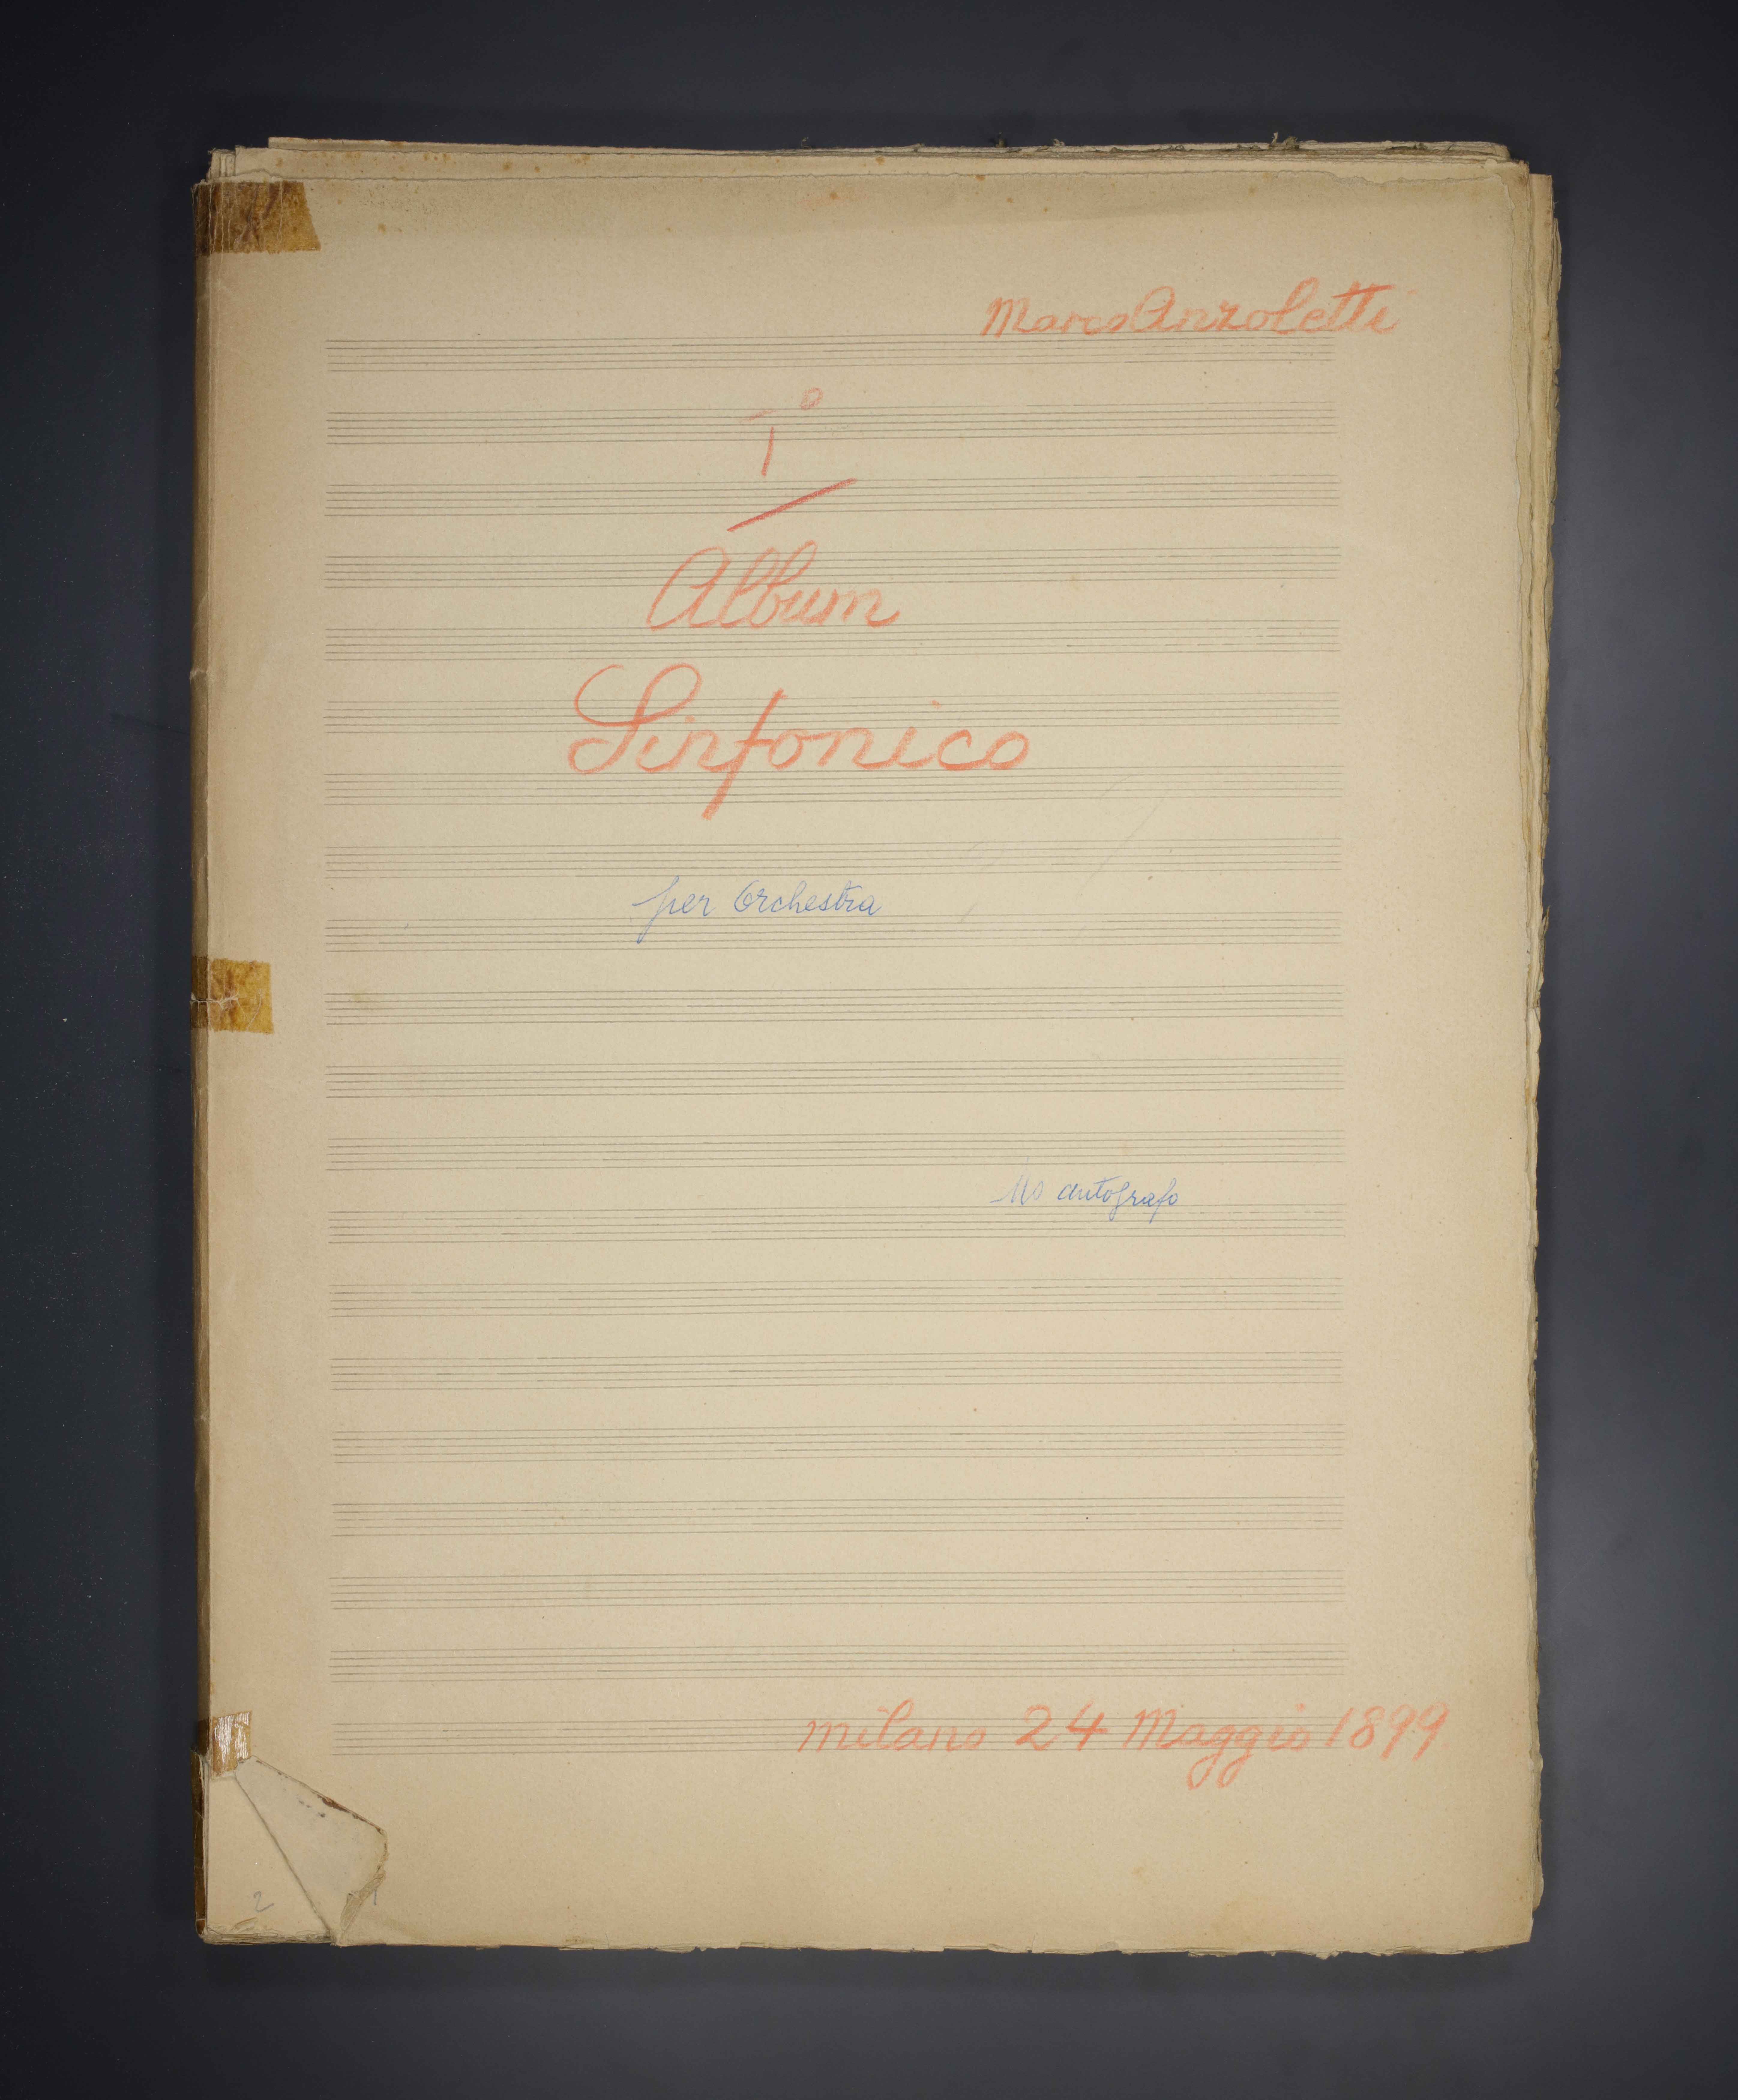 Marco Anzoletti
1º
Album
Sinfonico
per Orchestra
Ms autografo
Milano 24 Maggio 1899
2